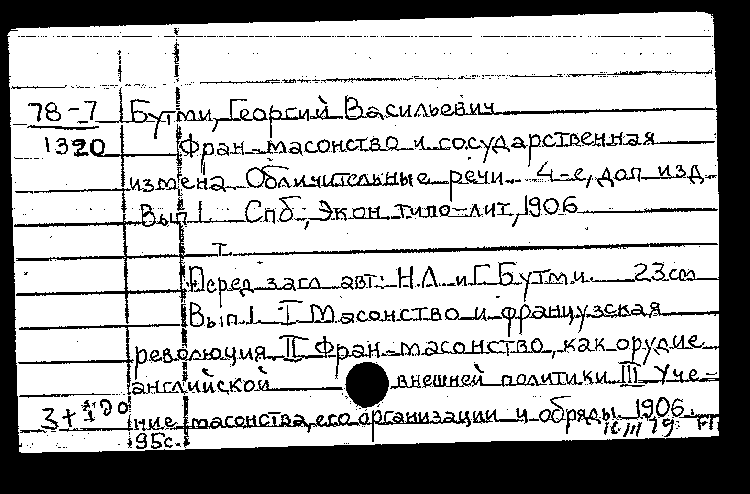 78-7 Бутми, Георгий Васильевич
1320 Фран-масонство и государственная
измена Обличительные речи. 4-е, доп изд
Вып 1. Спб., Экон типо-лит, 1906
т.
Перед загл авт: Н.Л и Г. Бутми. 23cm
Вып.1. I Масонство и французская
революция II Фран-масонство, как орудие
английской внешней политики III Уче-
3+ ние масонства, его организации и обряды. 1906.
95с. III 79